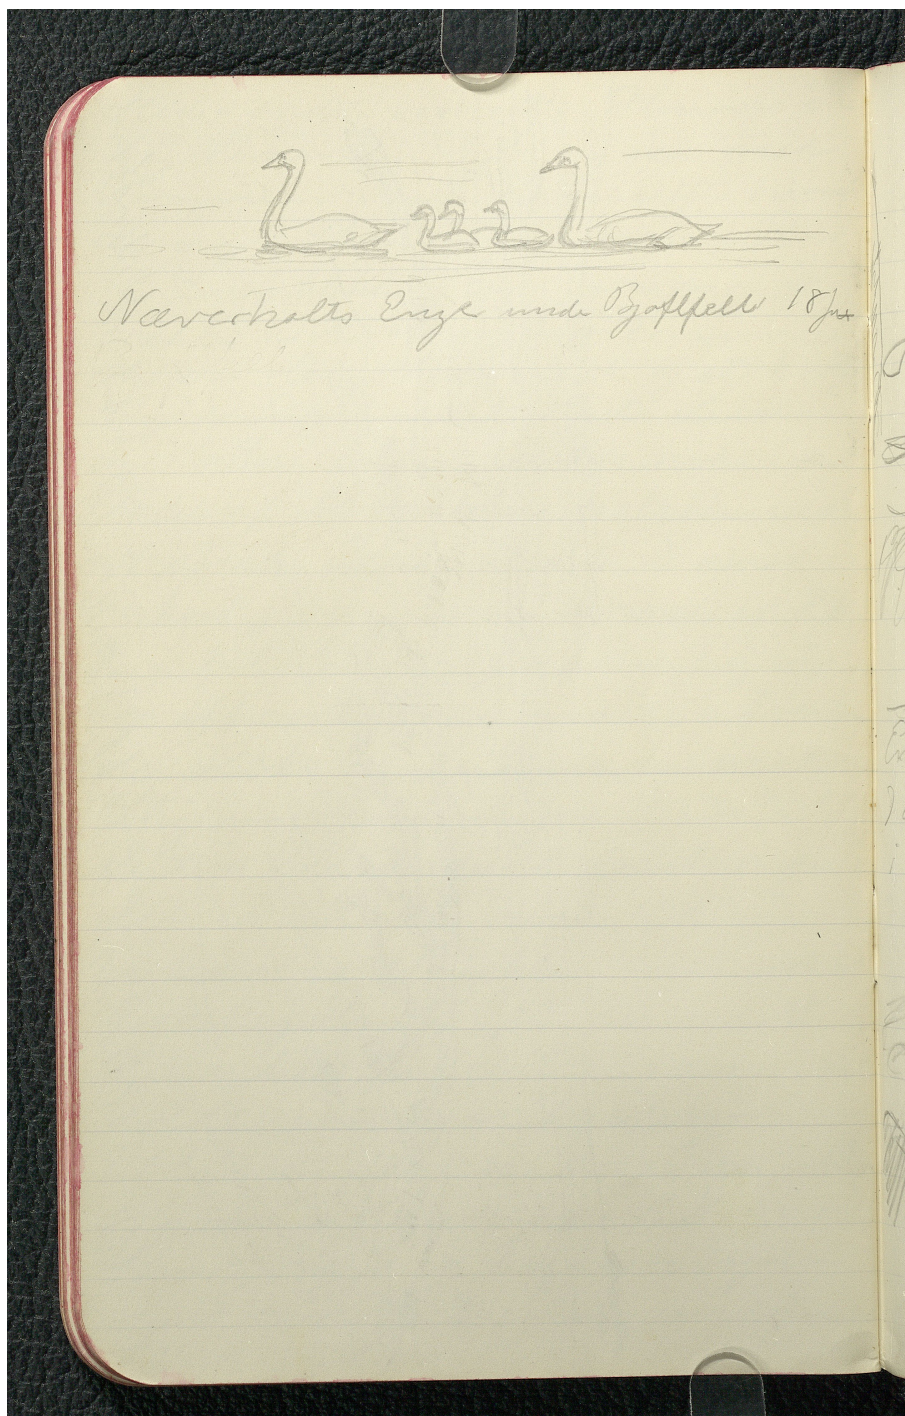 Næverholts Enge unde Bjollfell 18 Jun